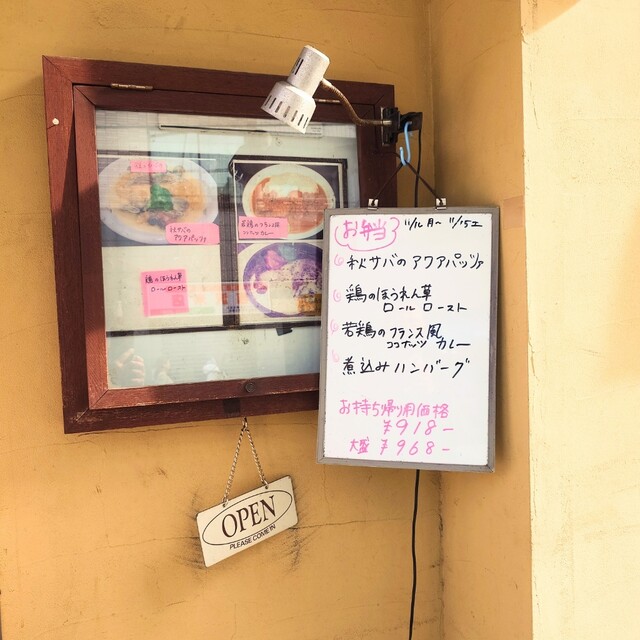 お弁当 11/10月〜11/15土
秋サバのアクアパッツァ
鶏のほうれん草
ロールロースト
若鶏のフランス風
ココナッツカレー
煮込みハンバーグ
お持ち帰り用価格
¥918-
大盛 ¥968-
秋サバの
アクアパッツァ
若鶏のフランス風
ココナッツカレー
鶏のほうれん草
ロールロースト
OPEN
PLEASE COME IN